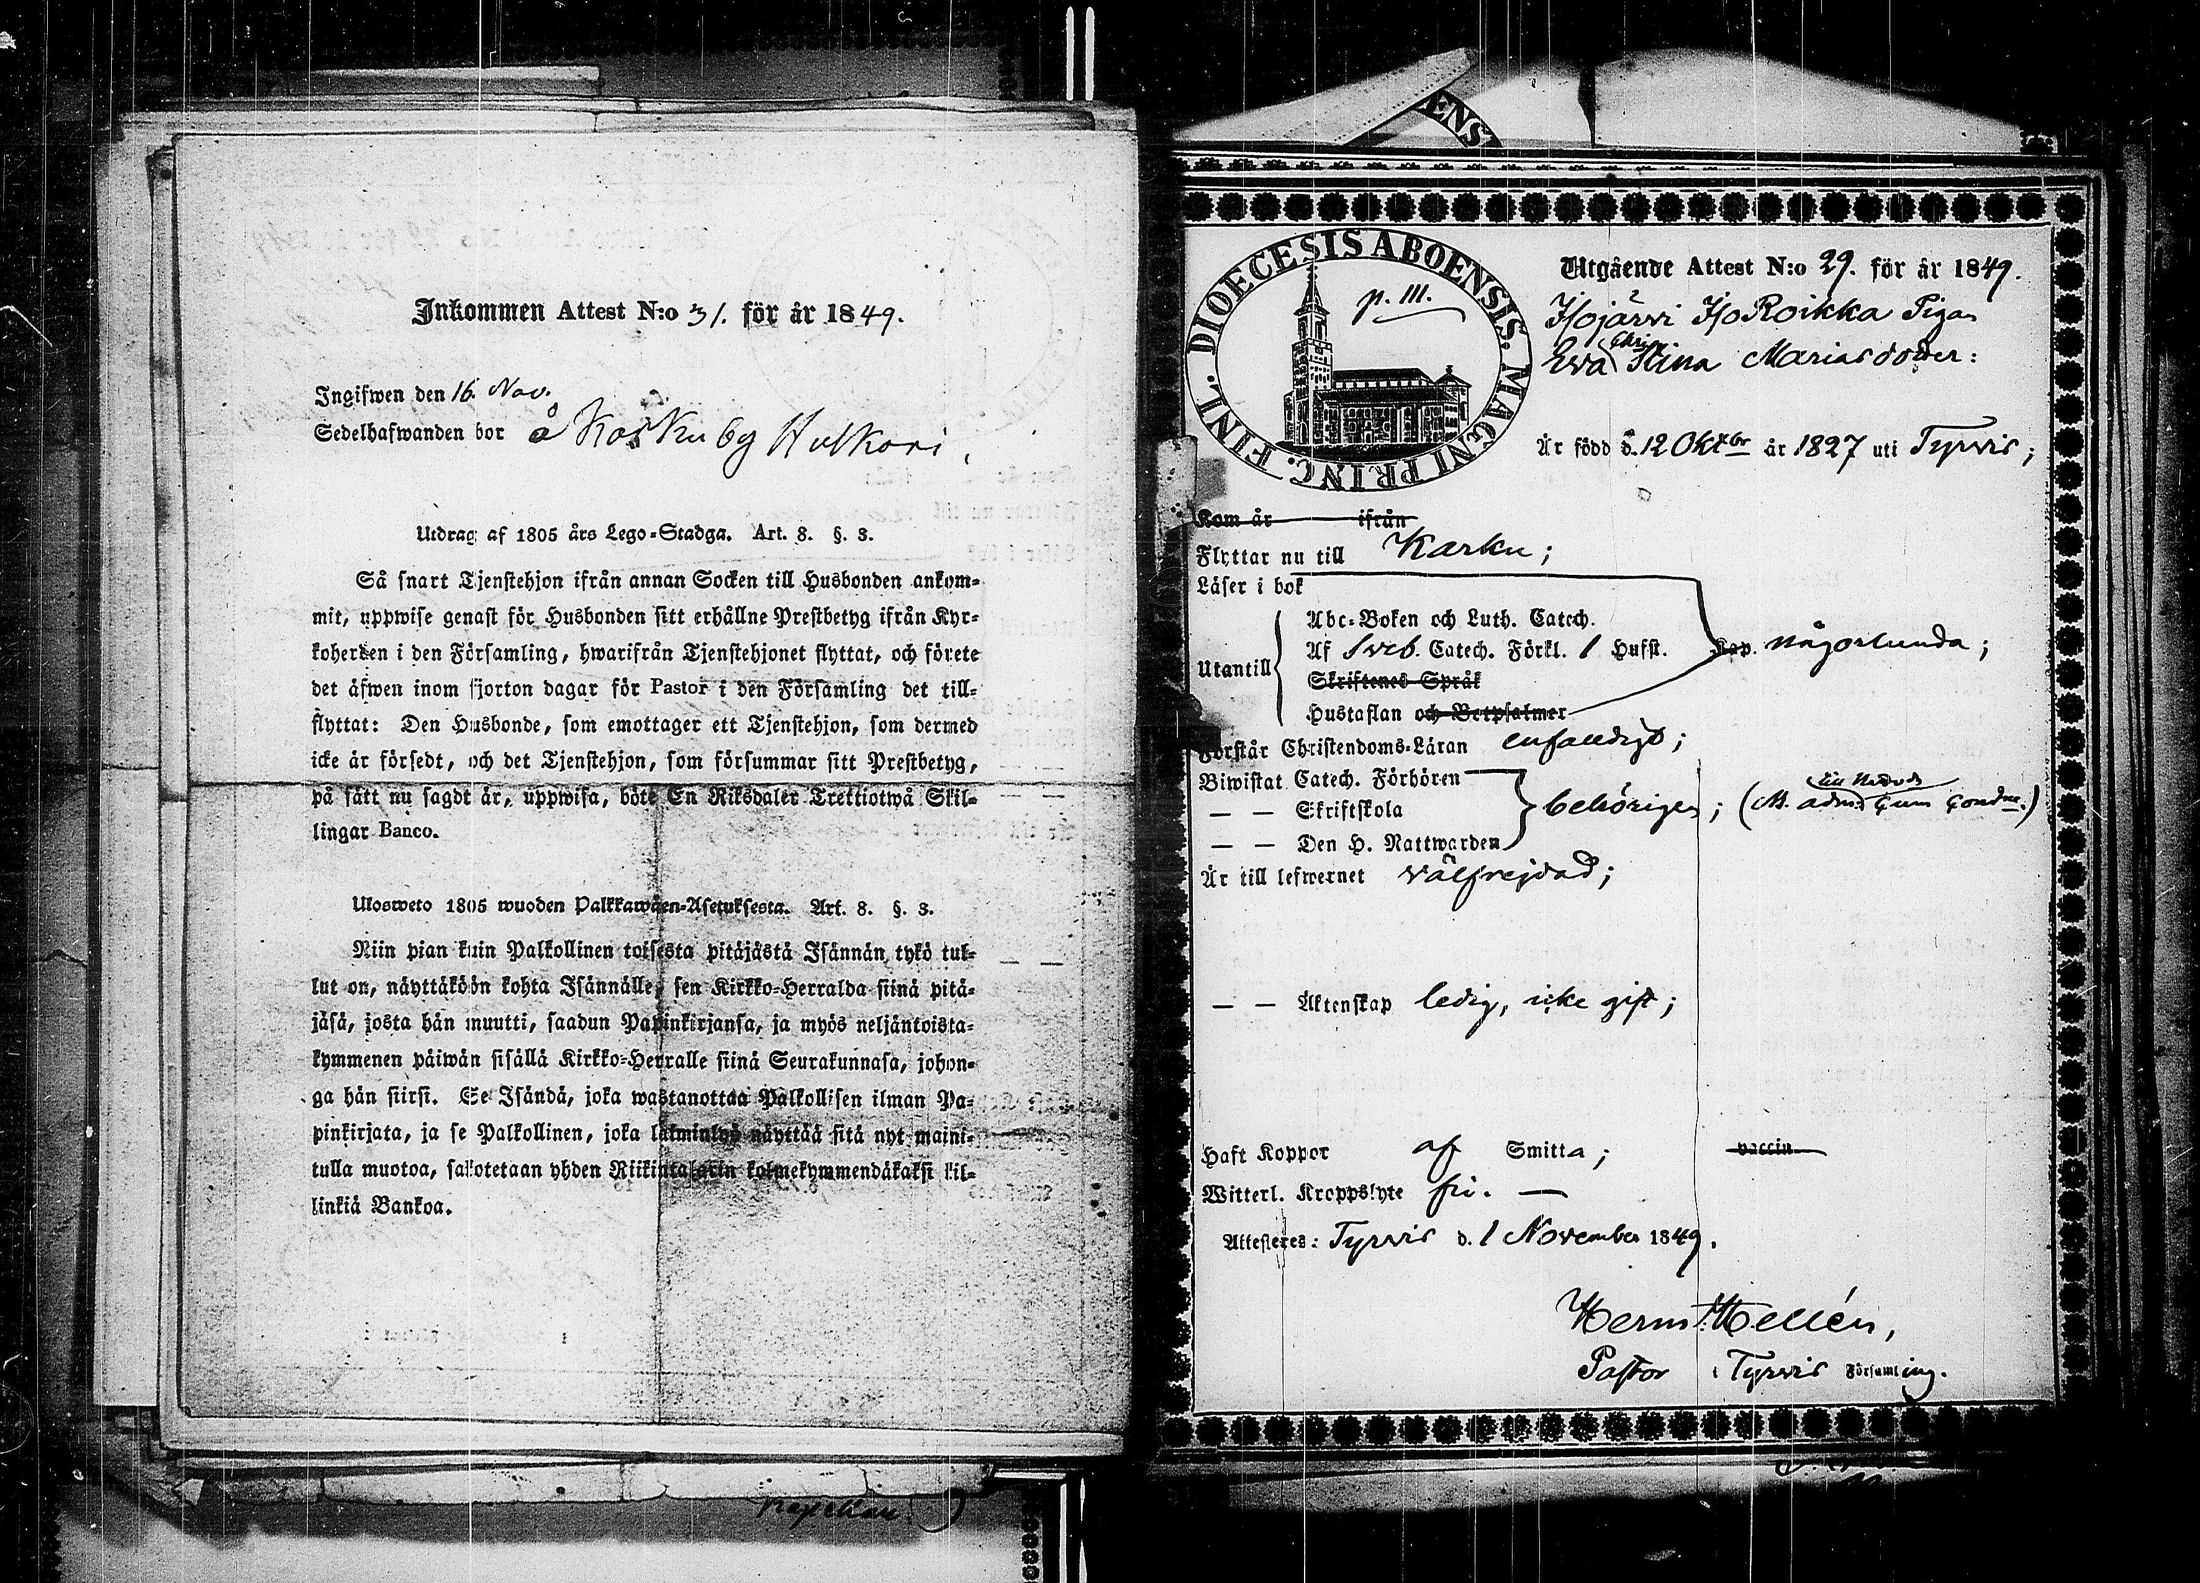 Inkommen Attest N:o 31. för år 1849.
Ingifwen den 16. Nov.
Sedelhafwanden bor å Karku by Hulkori,
Utdrag af 1805 års Lego-Stadga. Art. 8. §. 3.
Så snart Tjenstehjon ifrån annan Socken till Husbonden ankom-
mit, uppwise genast för Husbonden sitt erhållne Prestbetyg ifrån Kyr-
koherden i den Församling, hwarifrån Tjenstehjonet flyttat, och förete
det äfwen inom fjorton dagar för Pastor i den Församling det till-
flyttat: Den Husbonde, som emottager ett Tjenstehjon, som dermed
icke är försedt, och det Tjenstehjon, som försummar sitt Prestbetyg,
på sätt nu sagdt är, uppwisa, böte En Riksdaler Trettiotwå Skil-
lingar Banco.
Ulosweto 1805 wuoden Palkkawäen-Asetuksesta. Art. 8. §. 3.
Niin pian kuin Palkollinen toisesta pitäjästä Isännän tykö tul-
lut on, näyttäköön kohta Isännälle, sen Kirkko-Herralda siinä pitä-
jäsä, josta hän muutti, saadun Papinkirjansa, ja myös neljäntoista-
kymmenen päiwän sisällä Kirkko-Herralle siinä Seurakunnasa, johon-
ga hän siirsi. Se Isändä, joka wastanottaa Palkollisen ilman Pa-
pinkirjata, ja se Palkollinen, joka laiminlyö näyttää sitä nyt maini-
tulla muotoa, sakotetaan yhden Riikintalarin kolmekymmendäkaksi kil-
linkiä Bankoa.
DIOECESIS ABOENSIS. MAGNI PRINC. FINL.
p. 111.
Utgående Attest N:o 29. för år 1849.
Isojärvi Iso Roikka Pigan
Eva Chri Stina Mariasdotter:
Är född d. 12 Oktbr år 1827 uti Tyrvis;
Kom år ifrån
Flyttar nu till Karku;
Läser i bok
Utantill
Abc-Boken och Luth. Catech.
Af Sveb. Catech. Förkl. 1 Hufst. Kap. någorlunda;
Skriftenes Språk
Hustaflan och Botpsalmer
Förstår Christendoms-Läran enfaldigt;
Biwistat Catech. Förhören
— — Skriftskola behörigen;
— — Den H. Nattwarden
Är till lefwernet välfrejdad;
— — Äktenskap ledig, icke gift;
Haft Koppor af Smitta; vaccin
Witterl. Kroppslyte fri. —
Attesteres: Tyrvis d. 1 November 1849.
Herm. Hellén,
Pastor i Tyrvis Församling.
ENS